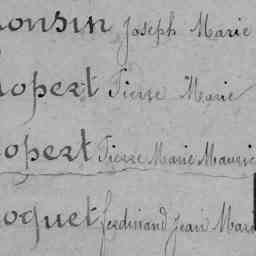 onsin Joseph Marie
opert Pierre Marie
opert Pierre Marie Mauric
oquet ferdinand Jean Mari